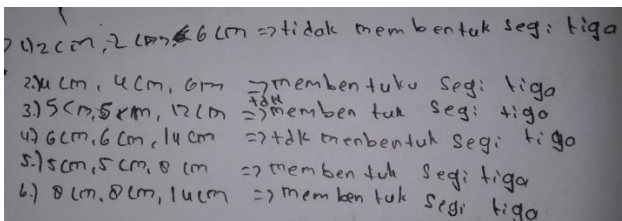 1) 2 cm, 2 cm, 6 cm => tidak membentuk segi tiga
2.) 4 cm, 4 cm, 6m => membentuku segi tiga
3.) 5 cm, 5 cm, 12 cm => tdk membentuk segi tiga
4) 6 cm, 6 cm, 14 cm => tdk menbentuk segi tiga
5.) 5 cm, 5 cm, 8 cm => membentuk segi tiga
6.) 8 cm, 8 cm, 14 cm => membentuk segi tiga